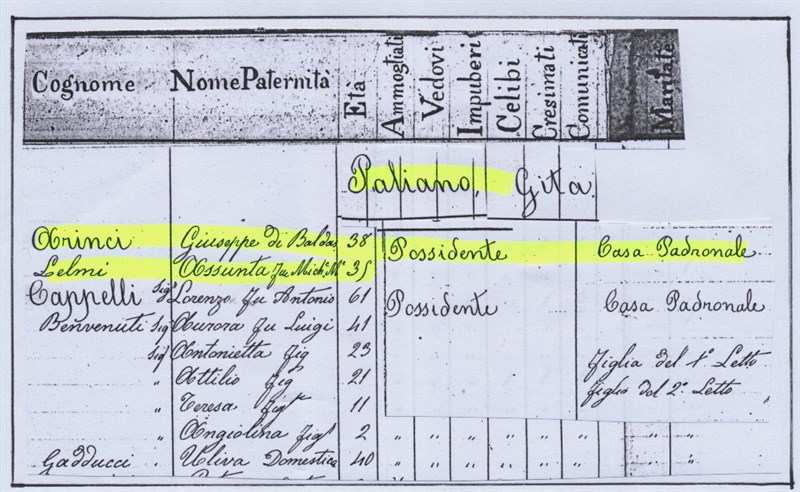 Cognome NomePaternità Età Ammogliati Vedovi Impuberi Celibi Cresimati Comunicati Maritate
Paliano, Gita.
Orinci Giuseppe di Baldas. 38 Possidente Casa Padronale
Lelmi Assunta fu Mich. M. 35
Cappelli Sig. Lorenzo fu Antonio 61 Possidente Casa Padronale
Benvenuti Sig. Aurora fu Luigi 41
Sig. Antonietta fig 23 figlia del 1º Letto
" Attilio fig 21 figlio del 2º Letto
" Teresa fig 11
" Angiolina fig 2 " " " " " " " "
Gadducci " Uliva Domestica 40 " " " " " " "